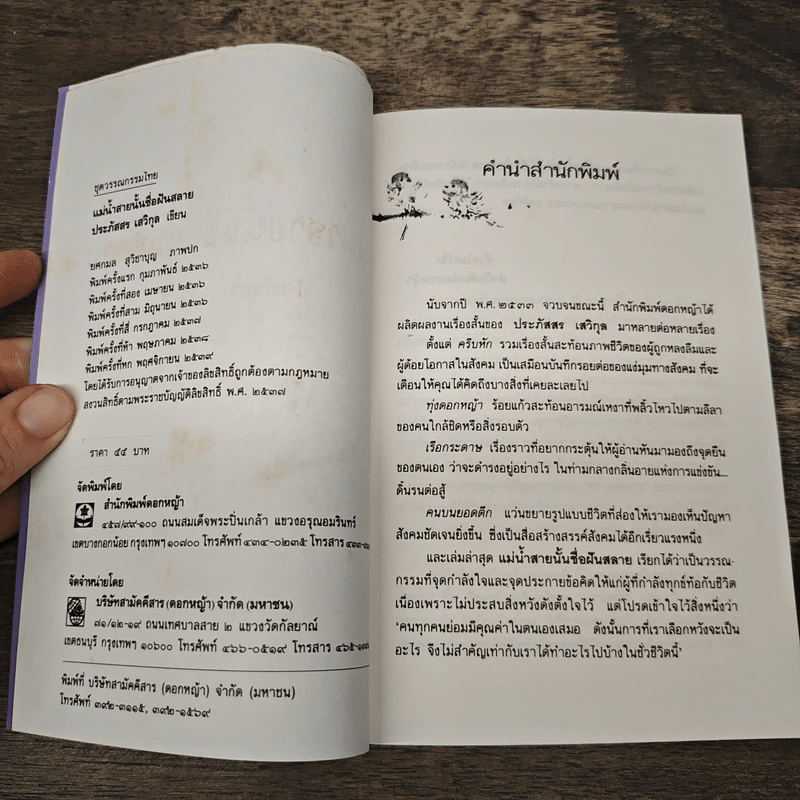 ชุดวรรณกรรมไทย
แม่น้ำสายนั้นชื่อฝันสลาย
ประภัสสร เสวิกุล เขียน
ยศกมล สุวิชาบุญ ภาพปก
พิมพ์ครั้งแรก กุมภาพันธ์ ๒๕๓๖
พิมพ์ครั้งที่สอง เมษายน ๒๕๓๖
พิมพ์ครั้งที่สาม มิถุนายน ๒๕๓๖
พิมพ์ครั้งที่สี่ กรกฎาคม ๒๕๓๗
พิมพ์ครั้งที่ห้า พฤษภาคม ๒๕๓๘
พิมพ์ครั้งที่หก พฤศจิกายน ๒๕๓๙
โดยได้รับการอนุญาตจากเจ้าของลิขสิทธิ์ถูกต้องตามกฎหมาย
สงวนสิทธิ์ตามพระราชบัญญัติลิขสิทธิ์ พ.ศ. ๒๕๓๗
ราคา ๕๕ บาท
จัดพิมพ์โดย
สำนักพิมพ์ดอกหญ้า
๔๕๗/๙๙-๑๐๐ ถนนสมเด็จพระปิ่นเกล้า แขวงอรุณอมรินทร์
เขตบางกอกน้อย กรุงเทพฯ ๑๐๗๐๐ โทรศัพท์ ๔๓๔-๐๒๓๕ โทรสาร
จัดจำหน่ายโดย
บริษัทสามัคคีสาร (ดอกหญ้า) จำกัด (มหาชน)
๗๑/๑๒-๑๙ ถนนเทศบาลสาย ๒ แขวงวัดกัลยาณ์
เขตธนบุรี กรุงเทพฯ ๑๐๖๐๐ โทรศัพท์ ๔๖๖-๐๕๑๙ โทรสาร
พิมพ์ที่ บริษัทสามัคคีสาร (ดอกหญ้า) จำกัด (มหาชน)
โทรศัพท์ ๓๙๒-๓๑๑๕, ๓๙๒-๑๕๖๙
คำนำสำนักพิมพ์
นับจากปี พ.ศ.๒๕๓๓ จวบจนขณะนี้ สำนักพิมพ์ดอกหญ้าได้
ผลิตผลงานเรื่องสั้นของ ประภัสสร เสวิกุล มาหลายต่อหลายเรื่อง
ตั้งแต่ ครีบหัก รวมเรื่องสั้นสะท้อนภาพชีวิตของผู้ถูกหลงลืมและ
ผู้ด้อยโอกาสในสังคม เป็นเสมือนบันทึกรอยต่อของแง่มุมทางสังคม ที่จะ
เตือนให้คุณได้คิดถึงบางสิ่งที่เคยละเลยไป
ทุ่งดอกหญ้า ร้อยแก้วสะท้อนอารมณ์เหงาที่พลิ้วไหวไปตามลีลา
ของคนใกล้ชิดหรือสิ่งรอบตัว
เรือกระดาษ เรื่องราวที่อยากกระตุ้นให้ผู้อ่านหันมามองถึงจุดยืน
ของตนเอง ว่าจะดำรงอยู่อย่างไร ในท่ามกลางกลิ่นอายแห่งการแข่งขัน...
ดิ้นรนต่อสู้
คนบนยอดตึก แว่นขยายรูปแบบชีวิตที่ส่องให้เรามองเห็นปัญหา
สังคมชัดเจนยิ่งขึ้น ซึ่งเป็นสื่อสร้างสรรค์สังคมได้อีกเรี่ยวแรงหนึ่ง
และเล่มล่าสุด แม่น้ำสายนั้นชื่อฝันสลาย เรียกได้ว่าเป็นวรรณ-
กรรมที่จุดกำลังใจและจุดประกายข้อคิดให้แก่ผู้ที่กำลังทุกข์ท้อกับชีวิต
เนื่องเพราะไม่ประสบสิ่งหวังดังตั้งใจไว้ แต่โปรดเข้าใจไว้สิ่งหนึ่งว่า
'คนทุกคนย่อมมีคุณค่าในตนเองเสมอ ดังนั้นการที่เราเลือกหวังจะเป็น
อะไร จึงไม่สำคัญเท่ากับเราได้ทำอะไรไปบ้างในชั่วชีวิตนี้'